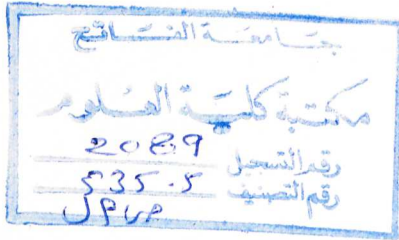 جامعة الفاتح
مكتبة كلية العلوم
رقم التسجيل 2089
رقم التصنيف 535.5